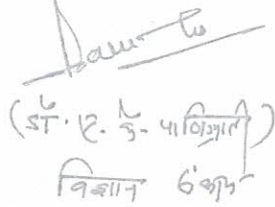 (डॉ. ए. के. पाणिग्राही)
विज्ञान संकाय